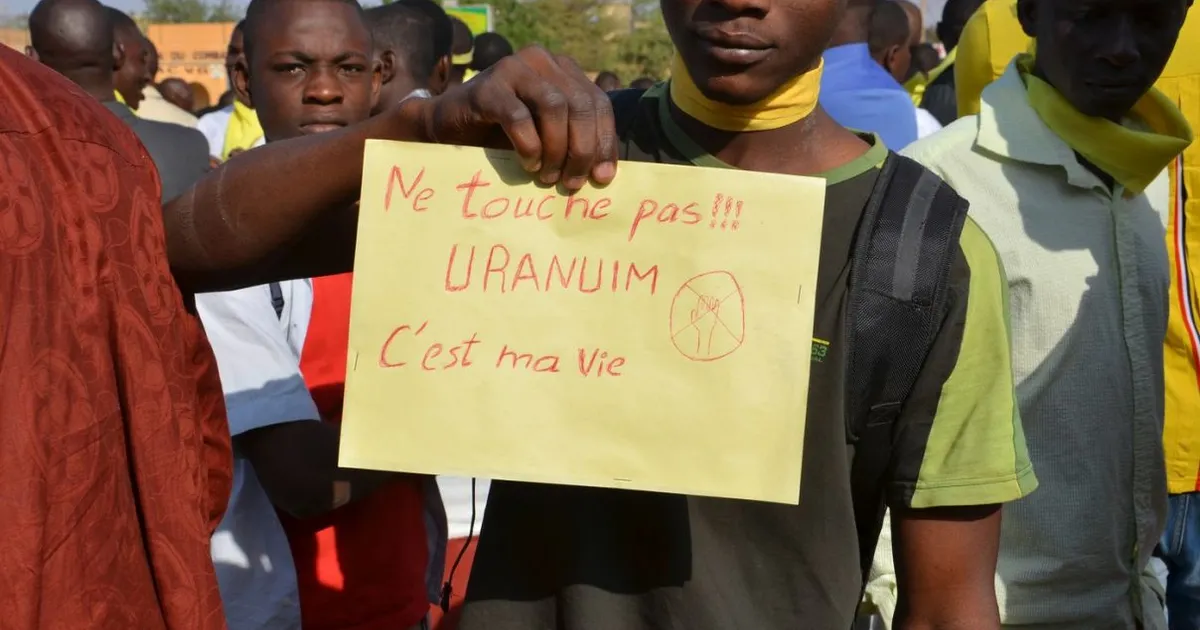 Ne touche pas!!!
URANUIM
C'est ma Vie
63